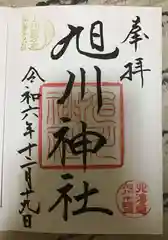 奉拝
旭川神社
令和六年十二月十九日